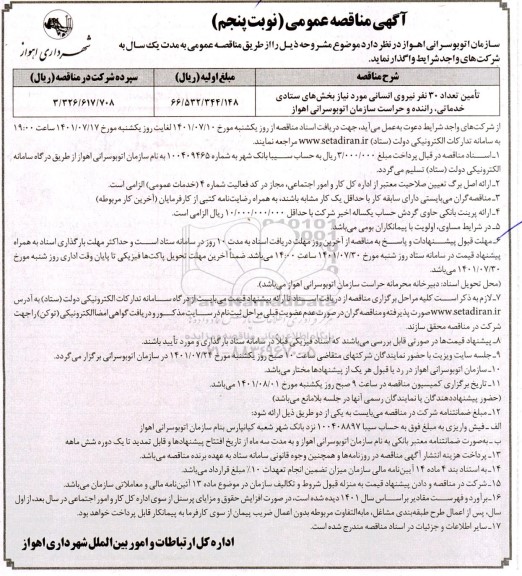 آگهی مناقصه عمومی (نوبت پنجم)
شهرداری اهواز
سازمان اتوبوسرانی اهواز در نظر دارد موضوع مشروحه ذیل را از طریق مناقصه عمومی به مدت یک سال به
شرکت‌های واجد شرایط واگذار نماید.
شرح مناقصه | مبلغ اولیه (ریال) | سپرده شرکت در مناقصه (ریال)
تأمین تعداد ۳۰ نفر نیروی انسانی مورد نیاز بخش‌های ستادی | ۶۶/۵۳۲/۳۴۴/۱۴۸ | ۳/۳۲۶/۶۱۷/۷۰۸
خدماتی، راننده و حراست سازمان اتوبوسرانی اهواز
از شرکت‌های واجد شرایط دعوت به عمل می‌آید، جهت دریافت اسناد مناقصه از روز یکشنبه مورخ ۱۴۰۱/۰۷/۱۰ لغایت روز یکشنبه مورخ ۱۴۰۱/۰۷/۱۷ ساعت ۱۹:۰۰
به سامانه تدارکات الکترونیکی دولت (ستاد) www.setadiran.ir مراجعه نمایند.
۱-اسناد مناقصه در قبال پرداخت مبلغ ۳/۰۰۰/۰۰۰ ریال به حساب سیبا بانک شهر به شماره ۱۰۰۴۰۹۴۶۵ به نام سازمان اتوبوسرانی اهواز از طریق درگاه سامانه
الکترونیکی دولت (ستاد) تسلیم می‌گردد.
۲-ارائه اصل برگ تعیین صلاحیت معتبر از اداره کل کار و امور اجتماعی، مجاز در کد فعالیت شماره ۴ (خدمات عمومی) الزامی است.
۳-مناقصه‌گران می‌بایستی دارای سابقه کار با حداقل یک کار مشابه باشند، به همراه رضایت‌نامه کتبی از کارفرمایان (آخرین کار مربوطه)
۴-ارائه پرینت بانکی حاوی گردش حساب یکساله اخیر شرکت با حداقل ۱۰/۰۰۰/۰۰۰/۰۰۰ ریال الزامی است.
۵-در شرایط مساوی، اولویت با پیمانکاران بومی می‌باشد.
۶-مهلت قبول پیشنهادات و پاسخ به مناقصه از آخرین روز مهلت دریافت اسناد به مدت ۱۰ روز در سامانه ستاد است و حداکثر مهلت بارگذاری اسناد به همراه
پیشنهاد قیمت در سامانه ستاد روز شنبه مورخ ۱۴۰۱/۰۷/۳۰ ساعت ۱۴:۰۰ می‌باشد. ضمناً آخرین مهلت تحویل پاکت‌ها فیزیکی تا پایان وقت اداری روز شنبه مورخ
۱۴۰۱/۰۷/۳۰ می‌باشد.
(محل تحویل اسناد: دبیرخانه محرمانه حراست سازمان اتوبوسرانی اهواز می‌باشد).
۷-لازم به ذکر است کلیه مراحل برگزاری مناقصه از دریافت اسناد تا ارائه پیشنهاد قیمت می‌بایست از درگاه سامانه تدارکات الکترونیکی دولت (ستاد) به آدرس
www.setadiran.ir صورت پذیرفته و مناقصه‌گران در صورت عدم عضویت قبلی مراحل ثبت‌نام در سایت مذکور و دریافت گواهی امضا الکترونیکی (توکن) را جهت
شرکت در مناقصه محقق سازند.
۸-پیشنهاد قیمت‌ها در صورتی قابل بررسی می‌باشند که اسناد فیزیکی قبلا در سامانه ستاد بارگذاری و مورد تأیید باشند.
۹-جلسه سایت ویزیت با حضور نمایندگان شرکتهای متقاضی ساعت ۱۰ صبح روز یکشنبه مورخ ۱۴۰۱/۰۷/۲۴ در سازمان اتوبوسرانی برگزار می‌گردد.
۱۰-سازمان اتوبوسرانی اهواز در رد یا قبول هر یک از پیشنهادها مختار می‌باشد.
۱۱-تاریخ برگزاری کمیسیون مناقصه در ساعت ۹ صبح روز یکشنبه مورخ ۱۴۰۱/۰۸/۰۱ می‌باشد.
(حضور پیشنهاددهندگان یا نمایندگان رسمی آنها در جلسه بلامانع می‌باشد)
۱۲-مبلغ ضمانتنامه شرکت در مناقصه می‌بایست به یکی از دو طریق ذیل ارائه شود:
الف-فیش واریزی به مبلغ فوق به حساب سیبا ۱۰۰۴۰۸۸۹۷ نزد بانک شهر شعبه کیانپارس بنام سازمان اتوبوسرانی اهواز
ب-به صورت ضمانتنامه معتبر بانکی به نام سازمان اتوبوسرانی اهواز و به مدت سه ماه از تاریخ افتتاح پیشنهادها و قابل تمدید تا یک دوره شش ماهه
۱۳-پرداخت هزینه انتشار آگهی مناقصه در روزنامه‌ها و همچنین وجوه قانونی سامانه ستاد به عهده برنده مناقصه می‌باشد.
۱۴-به استناد بند ۴ ماده ۱۴ آیین‌نامه مالی سازمان میزان تضمین انجام تعهدات ۱۰٪ مبلغ قرارداد می‌باشد.
۱۵-شرکت در مناقصه و دادن پیشنهاد قیمت به منزله قبول شروط و تکالیف سازمان در موضوع ماده ۱۳ آئین‌نامه مالی و معاملاتی سازمان می‌باشد.
۱۶-برآورد و فهرست مقادیر براساس سال ۱۴۰۱ دیده شده است، در صورت افزایش حقوق و مزایای پرسنل از سوی اداره کل کار و امور اجتماعی در سال بعد، از اول
سال، پس از اعمال طرح طبقه‌بندی مشاغل، مابه‌التفاوت مربوطه بدون اعمال ضریب پیمان از سوی کارفرما به پیمانکار قابل پرداخت خواهد بود.
۱۷-سایر اطلاعات و جزئیات در اسناد مناقصه مندرج شده است.
اداره کل ارتباطات و امور بین الملل شهرداری اهواز